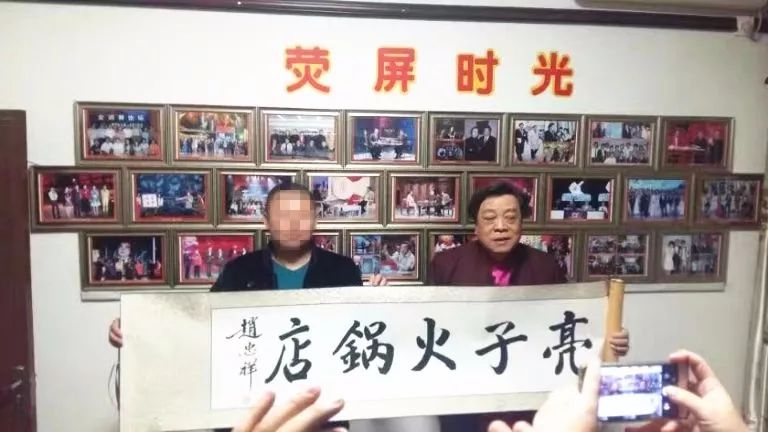 荧屏时光
亮子火鍋店
趙忠祥